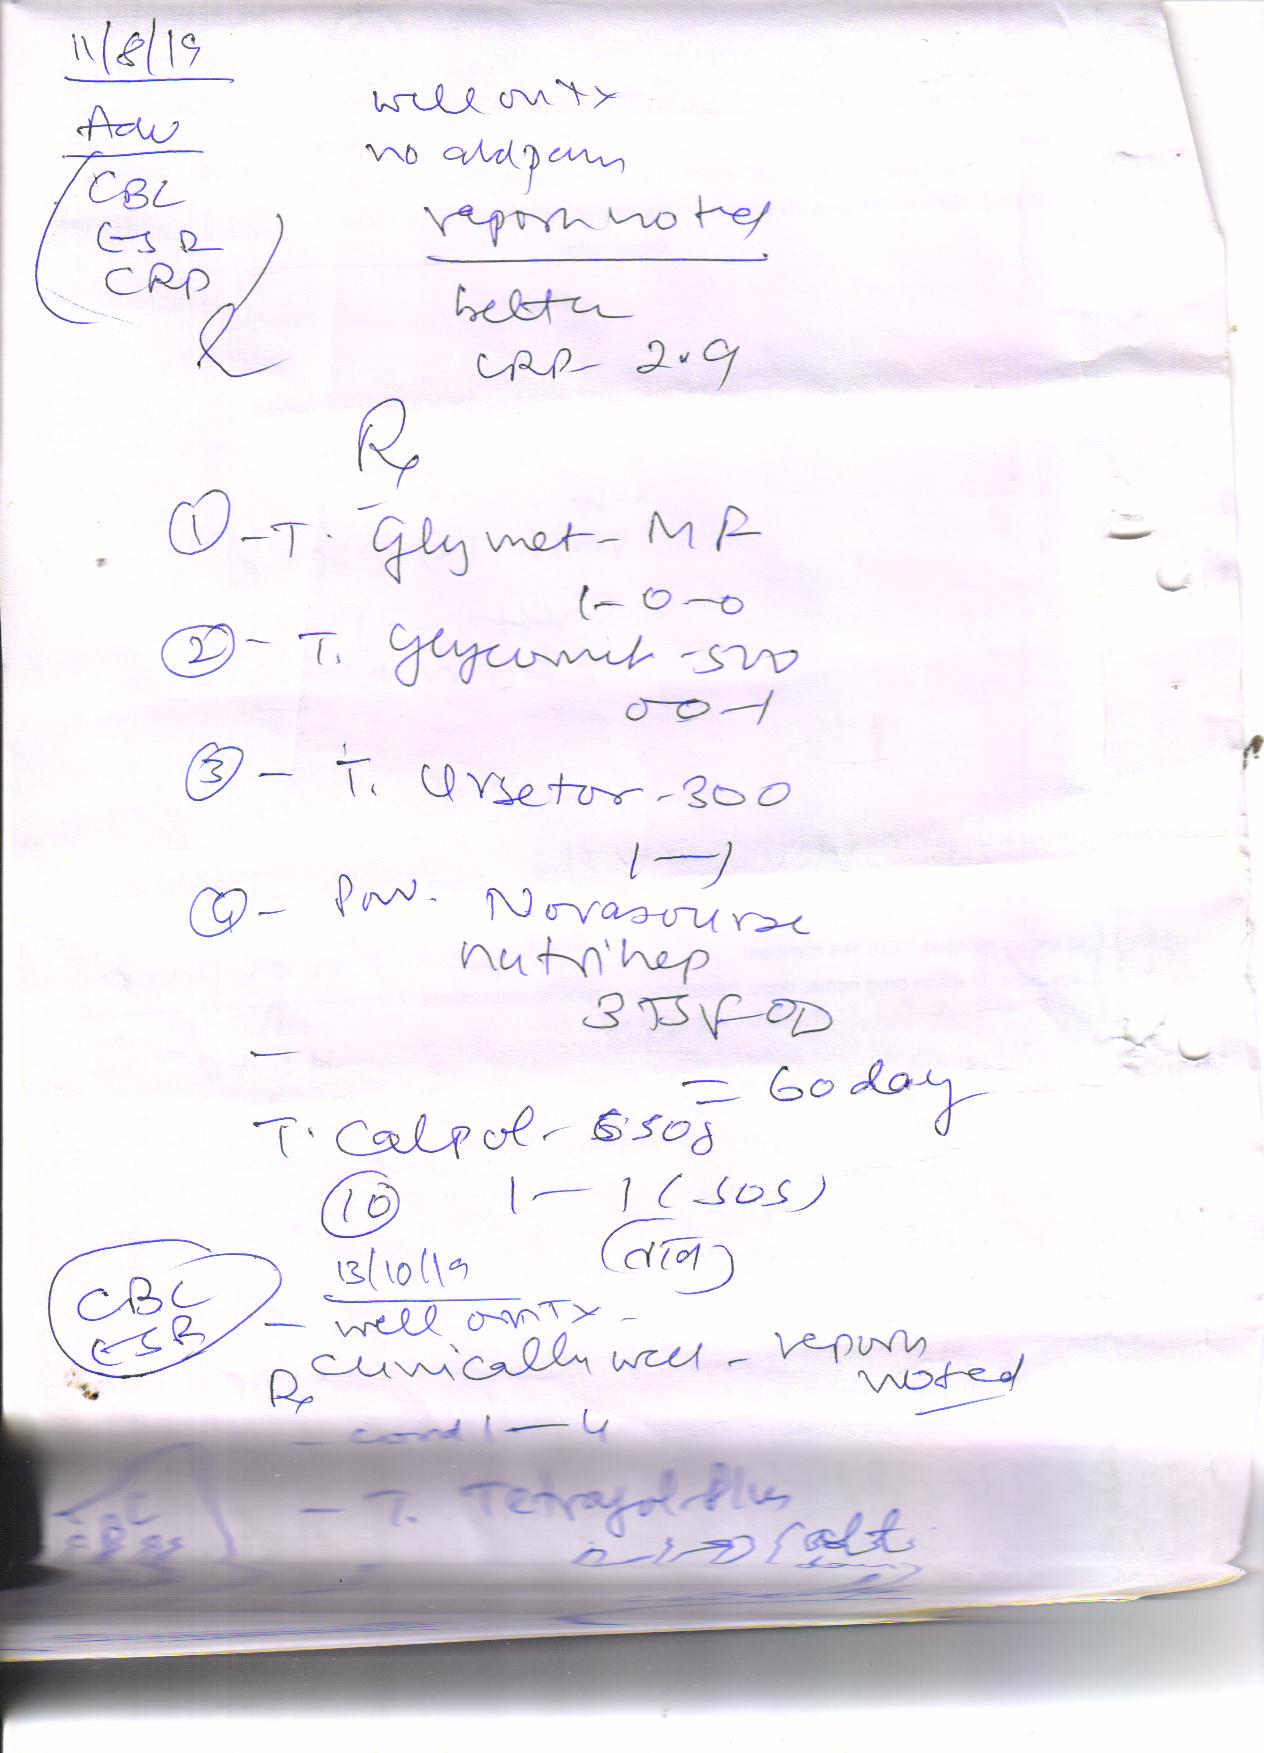 11/8/19
Adv
CBC
ESR
CRP
well on Tx
no abd pain
reports noted
better
CRP - 2.9
Rx
① - T. Glymet - MR
1-0-0
② - T. Glycomet - 500
0 0-1
③ - T. Ursetor - 300
1 — 1
④ - Pow. Novasourse
nutrihep
3 TSF OD
= 60 day
T. Calpol - 650
⑩ 1 — 1 (SOS)
13/10/19
CBC
ESR
- well on Tx -
clinically well - reports
noted
Rx
- cond 1 — 4
- T. Tetrafol Plus